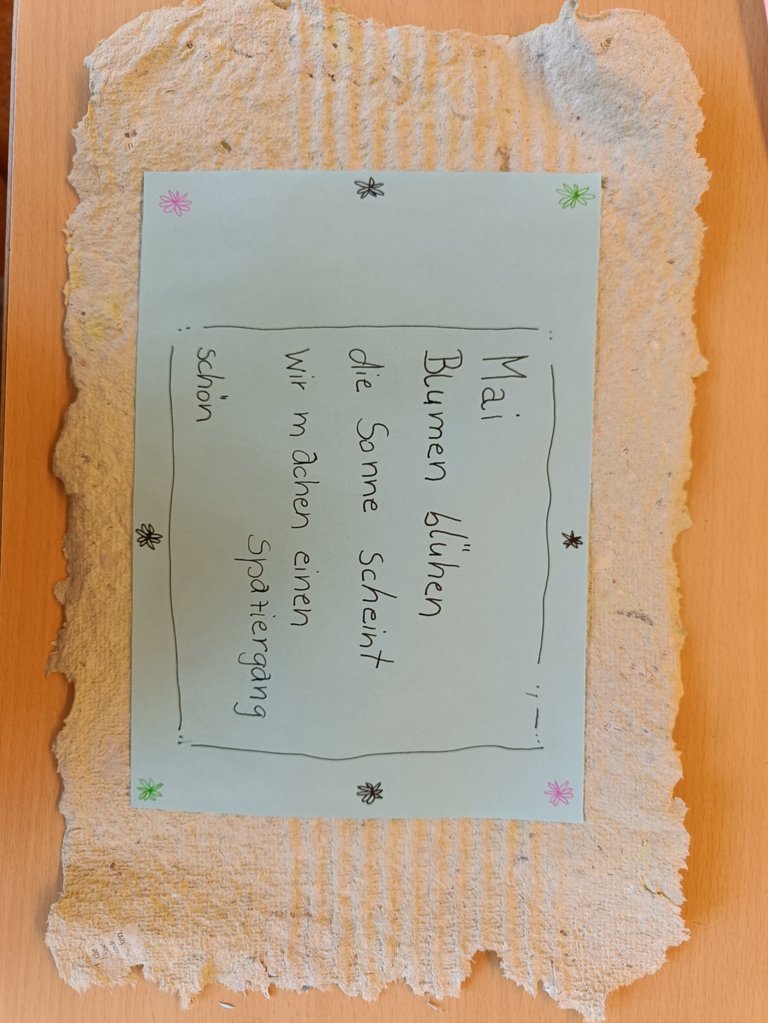 Mai
Blumen blühen
die Sonne scheint
Wir machen einen
Spaziergang
schön